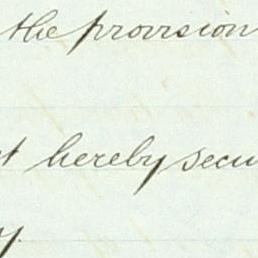 the provision
hereby secu
y